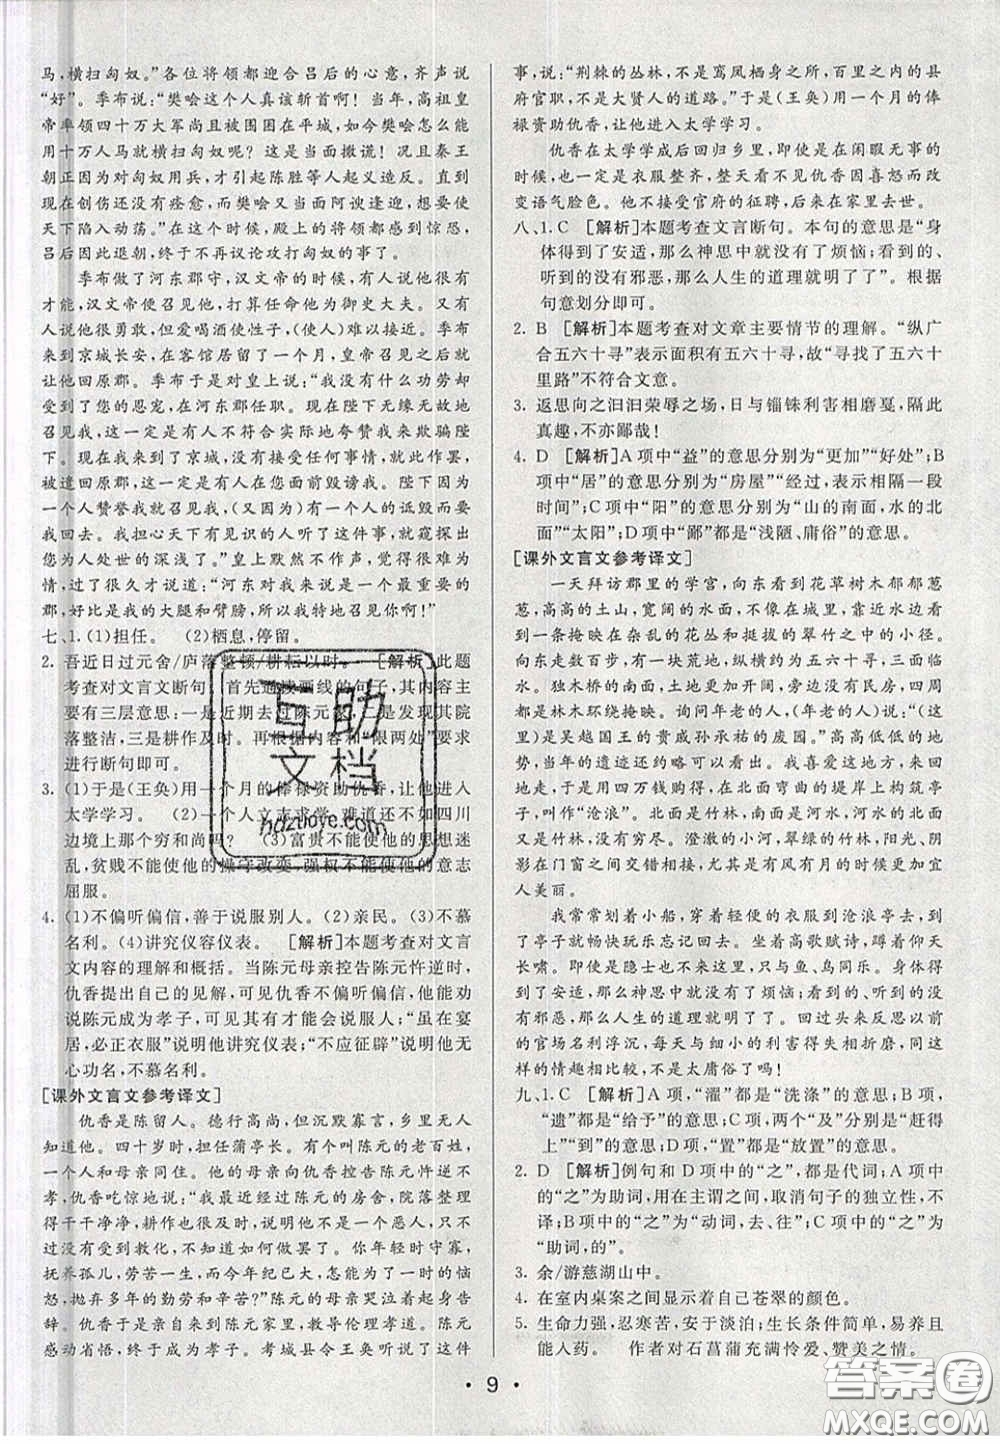 马,横扫匈奴。”各位将领都迎合吕后的心意,齐声说
“好”。季布说:“樊哙这个人真该斩首啊!当年,高祖皇
帝率领四十万大军尚且被围困在平城,如今樊哙怎么能
用十万人马就横扫匈奴呢?这是当面撒谎!况且秦王
朝正因为对匈奴用兵,才引起陈胜等人起义造反。直到
现在创伤还没有痊愈,而樊哙又当面阿谀逢迎,想要使
天下陷入动荡。”这时候,殿上的将领都感到惊恐,
吕后退朝,终于不再议论攻打匈奴的事了。
季布做了河东郡守,汉文帝的时候,有人说他很有
才能,汉文帝便召见他,打算任命他为御史大夫。又有
人说他很勇敢,但爱喝酒使性子,(使人)难以接近。季布
来到京城长安,在客馆居留了一个月,皇帝召见之后就
让他回原郡。季布于是对皇上说:“我没有什么功劳却
受到了您的恩宠,在河东郡任职。现在陛下无缘无故地
召见我,这一定是有人不符合实际地夸赞我来欺骗陛
下。现在我来到了京城,没有接受任何事情,就此作罢,
被遣回原郡,这一定是有人在您面前毁谤我。陛下因为
一个人赞誉我就召见我,(又因为)有人的诋毁而要我回
去。我担心天下有见识的人听了这件事,就窥探出
您为人处世的深浅了。”皇上默然不作声,觉得很难为
情,过了很久才说道:“河东对我来说是一个最重要的
郡,好比是我的大腿和臂膀,所以我特地召见你啊!”
七、1.(1)担任。 (2)栖息,停留。
2. 吾近日过元舍/庐落整顿/耕耘以时。 [解析]此题
考查对文言文断句。首先通读画线的句子,其内容主
要有三层意思:一是近期去过陈元家,二是发现其院
落整洁,三是耕作及时。再根据内容和“限两处”要求
进行断句即可。
3. (1)于是(王奂)用一个月的俸禄资助仇香,让他进入
太学学习。 (2)一个人立志求学,难道还不如四川
边境上那个穷和尚吗? (3)富贵不能使他的思想迷
乱,贫贱不能使他的操守改变,强权不能使他的意志
屈服。
4. (1)不偏听偏信,善于说服别人。(2)亲民。(3)不慕
名利。(4)讲究仪容仪表。 [解析]本题考查对文言
文内容的理解和概括。当陈元母亲控告陈元忤逆时,
仇香提出自己的见解,可见仇香不偏听偏信,他能劝
说陈元成为孝子,可见其有才能会说服人;“虽在宴
居,必正衣服”说明他讲究仪表;“不应征辟”说明他无
心功名,不慕名利。
[课外文言文参考译文]
仇香是陈留人。德行高尚,但沉默寡言,乡里无人
知道他。四十岁时,担任蒲亭长。有个叫陈元的老百姓,
一个人和母亲同住。他的母亲向仇香控告陈元忤逆不
孝,仇香吃惊地说:“我最近经过陈元的房舍,院落整理
得干干净净,耕作也很及时,这说明他不是一个恶人,只不
过没有受到教化,不知道如何做罢了。你年轻时守寡,
抚养孤儿,劳苦一生,而今年纪已大,怎能为了一时的恼
怒,抛弃多年的勤劳和辛苦?”陈元的母亲哭泣着起身告
辞。仇香于是亲自来到陈元家里,教导伦理孝道。陈元
感动省悟,终于成为孝子。考城县令王奂听说了这件
事,说:“荆棘的丛林,不是鸾凤栖身之所,百里之内的县
府官职,不是大贤人的道路。”于是(王奂)用一个月的俸
禄资助仇香,让他进入太学学习。
仇香在太学学成后回归乡里,即使是在闲暇无事的
时候,也一定是衣服整齐,整天看不到仇香因喜怒而改
变语气脸色。他不接受官府的征聘,后来在家里去世。
八、1.C [解析]本题考查文言断句。本句的意思是“身
体得到了安适,那么神思中就没有了烦恼;看到的、
听到的没有邪恶,那么人生的道理就明了了”。根据
句意划分即可。
2. B [解析]本题考查对文章主要情节的理解。“纵广
合五六十寻”表示面积有五六十寻,故“寻找了五六十
里路”不符合文意。
3. 返思向之汩汩荣辱之场,日与锱铢利害相磨戛,隔此
真趣,不亦鄙哉!
4. D [解析]A项中“益”的意思分别为“更加”“好处”;B
项中“居”的意思分别为“房屋”“经过,表示相隔一段
时间”;C项中“阳”的意思分别为“山的南面,水的北
面”“太阳”;D项中“鄙”都是“浅陋、庸俗”的意思。
[课外文言文参考译文]
一天拜访郡里的学宫,向东看到花草树木郁郁葱
葱,高高的土山,宽阔的水面,不像在城里,靠近水边有
一条掩映在杂乱的花丛和挺拔的翠竹之中的小径。
向东走几百步,有一块荒地,方圆约五六十寻,三面临
水。独木桥的南面更加开阔,旁边没有民房,四周
都是林木环绕掩映。询问年老的人,(年老的人)说:“(这
里)是吴越国王的贵戚孙承祐的废园。”高高低低的地
势,当年的遗迹还约略可以看见。我喜爱这里,来回地
走,于是用四万钱购得,在北面弯曲的堤岸上构筑亭
子,叫作“沧浪”。北面是竹林,南面是河水,河水的北面又是
竹林,没有穷尽。澄澈的小河,翠绿的竹林,阳光、阴
影在门窗之间交错相接,尤其是有风有月的时候更加宜
人美丽。
我常常划着小船,穿着轻便的衣服到沧浪亭上,到
了亭子就畅快玩乐忘记回去。或把酒赋诗,或仰天
长啸。即使是隐士也不来这里,只与鱼、鸟同乐。形体
得到了安适,那么神思中就没有了烦恼;看到的、听到的没
有邪恶,那么人生的道理就明了了。回过头来反思以前
的官场名利浮沉,每天与细小的利害得失相摩擦,同这样的
情趣相比较,不是太庸俗了吗!
九、1.C [解析]A项,“濯”都是“洗涤”的意思;B项,
“遗”都是“给予”的意思;C项,两个“及”分别是“赶得
上”“到”的意思;D项,“置”都是“放置”的意思。
2. D [解析]例句和D项中的“之”,都是代词;A项中
的“之”为助词,用在主谓之间,取消句子的独立性,不
译;B项中的“之”为“动词,去、往”;C项中的“之”为
“助词,的”。
3. 余/游慈湖山中。
4. 在室内桌案之间显示着自己苍翠的颜色。
5. 生命力强,忍寒苦,安于淡泊;生长条件简单,易养且
能入药。 作者对石菖蒲充满怜爱、赞美之情。
• 9 •
互助
文档
hdzuowe.com
答案圈
MXQE.COM